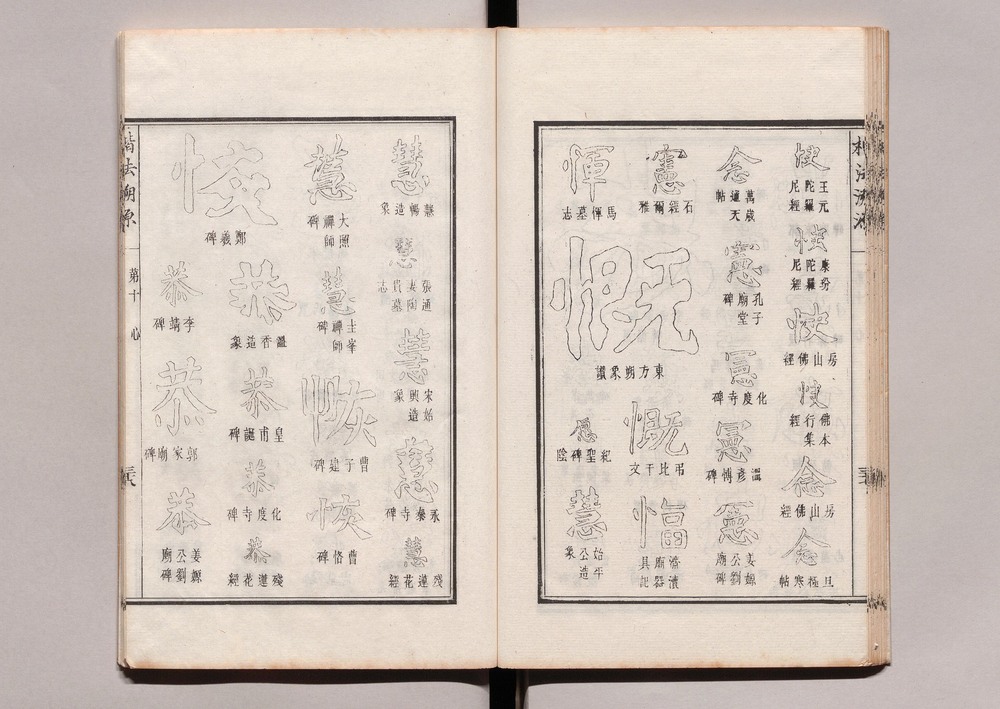 快
王元
陀羅
尼經
快
陀羅
尼經
快
房山佛經
快
佛本
行集
經
念
房山佛經
念
旦極寒帖
念
萬歲
通天
帖
憲
孔子
廟堂
碑
憲
化度寺碑
憲
溫彥博碑
憲
姜嫄
公劉
廟碑
憲
石經爾雅
慨
東方朔象讚
慨
弔比干文
愊
濟瀆
廟器
具記
惲
馬惲墓志
慁
紀聖碑陰
慧
始平
公造
象
慧
慧暢造象
慧
張通
妻陶
貴墓
志
慧
宋始
興造
象
慧
龍藏寺碑
慧
殘蓮花經
慧
大照
禪師
碑
慧
圭峯
禪師
碑
恢
曹子建碑
恢
曹恪碑
恢
鄭義碑
恭
溫香造象
恭
皇甫誕碑
恭
化度寺碑
恭
殘蓮花經
恭
李靖碑
恭
郭家廟碑
恭
姜嫄
公劉
廟碑
楷法溯原
第十
心